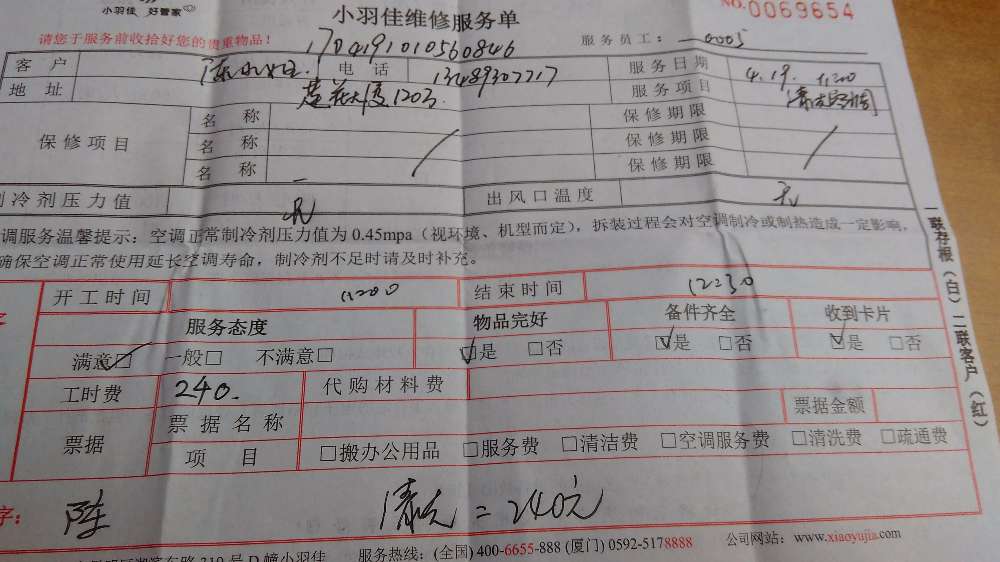 小羽佳 好管家
小羽佳维修服务单
NO.0069654
请您于服务前收拾好您的贵重物品!
17D4191010560846
服务员工: 0005
客户 电话 13489307717 服务日期 4.19. 11:00
地址 1203 服务项目 清洗空调
保修项目 名称 保修期限
名称 保修期限
名称 保修期限
制冷剂压力值 出风口温度
调服务温馨提示: 空调正常制冷剂压力值为 0.45mpa (视环境、机型而定), 拆装过程会对空调制冷或制热造成一定影响,
确保空调正常使用延长空调寿命, 制冷剂不足时请及时补充。
一联存根(白) 二联客户(红)
开工时间 11:00 结束时间 12:30
服务态度 物品完好 备件齐全 收到卡片
满意□ 一般□ 不满意□ □是 □否 □是 □否 □是 □否
工时费 240. 代购材料费
票据 票据名称 票据金额
项目 □搬办公用品 □服务费 □清洁费 □空调服务费 □清洗费 □疏通费
字: 陈 清洗=240元
319号D幢小羽佳 服务热线: (全国) 400-6655-888 (厦门) 0592-5178888 公司网站: www.xiaoyujia.com